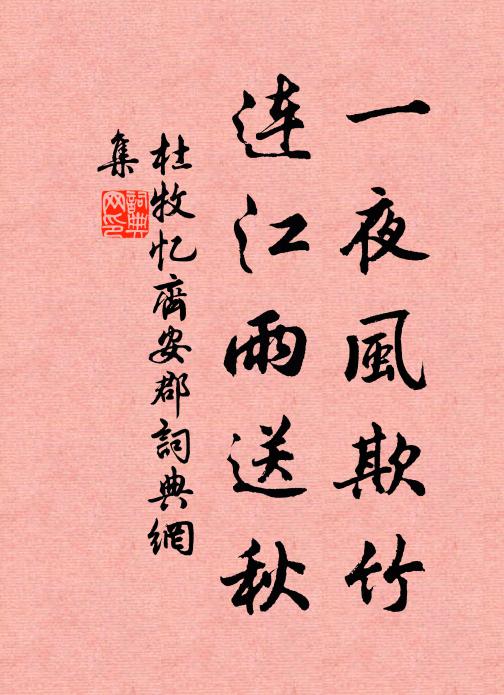 一夜風欺竹
連江雨送秋
杜牧忆齊安郡詞典網
集
詞典
网印